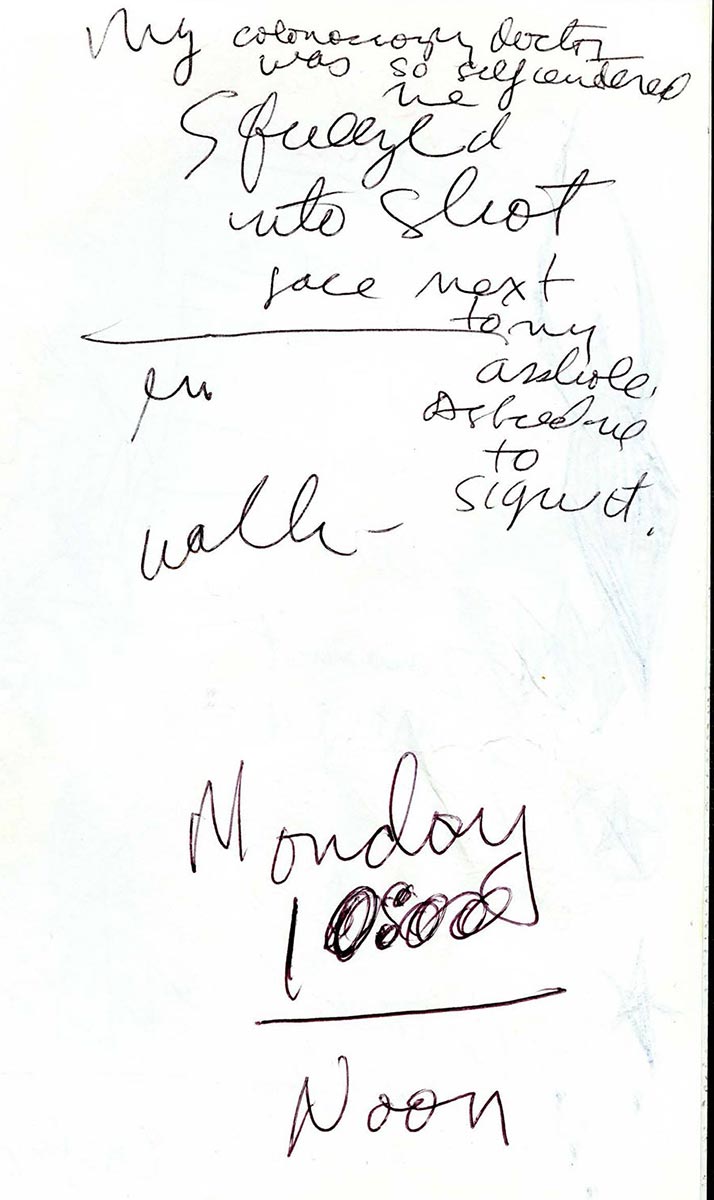 My colonoscopy doctor
was so selfcentered
he
Squeezed
into shot
face next
to my
asshole.
Asked me
to
sign it.
walk -
Monday
10:00
Noon